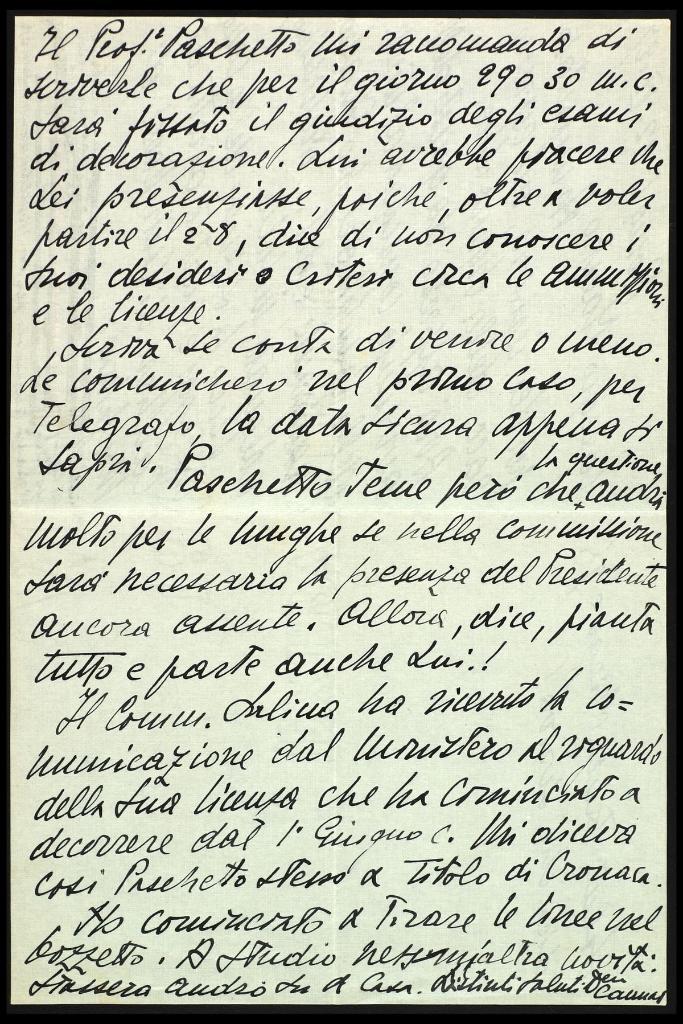 Il Prof.r Paschetto mi raccomanda di
scriverle che per il giorno 29 o 30 m.c.
sarà fissato il giudizio degli esami
di decorazione. Lui avrebbe piacere che
Lei presenziasse, poiché, oltre a voler
partire il 28, dice di non conoscere i
suoi desideri o criteri circa le ammissioni
e le licenze.
Scriva se conta di venire o meno.
Le communicherò nel primo caso, per
Telegrafo, la data sicura appena si
sapri. Paschetto teme però che la questione andrà
molto per le lunghe se nella commissione
sarà necessaria la presenza del Presidente
ancora assente. Allora, dice, pianta
tutto e parte anche Lui.!
Il Comm. Salina ha ricevuto la co=
municazione dal Ministero al riguardo
della Sua licenza che ha cominciato a
decorrere dal 1° Giugno c. Mi diceva
così Paschetto stesso a Titolo di Cronaca.
Ho cominciato a Tirare le linee nel
bozzetto. A Studio nessun'altra novità.
Stassera andrò su a Casa. Distinti saluti